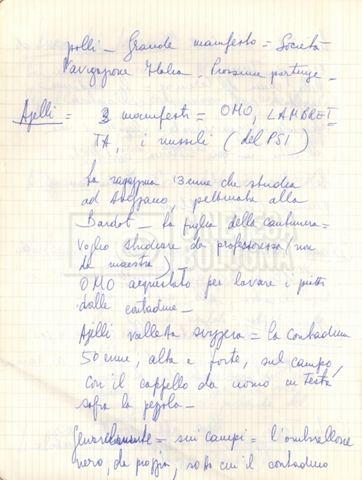 polli - Grande manifesto = Società
Navigazione Italia - Prossime partenze -
Ajelli = 3 manifesti = OMO, LAMBRET
TA, i missili (del PSI)
La ragazzina 13enne che studia
ad Avezzano, pettinata alla
Bardot - La figlia della cantiniera =
voglio studiare da professoressa / non
da maestra)
OMO acquistato per lavare i piatti
dalle contadine -
Ajelli valletta svizzera = la contadina
50enne, alta e forte, sul campo,
con il cappello da uomo in testa
sopra la pezzola -
Generalmente = sui campi = l'ombrellone
nero, da pioggia, sotto cui il contadino